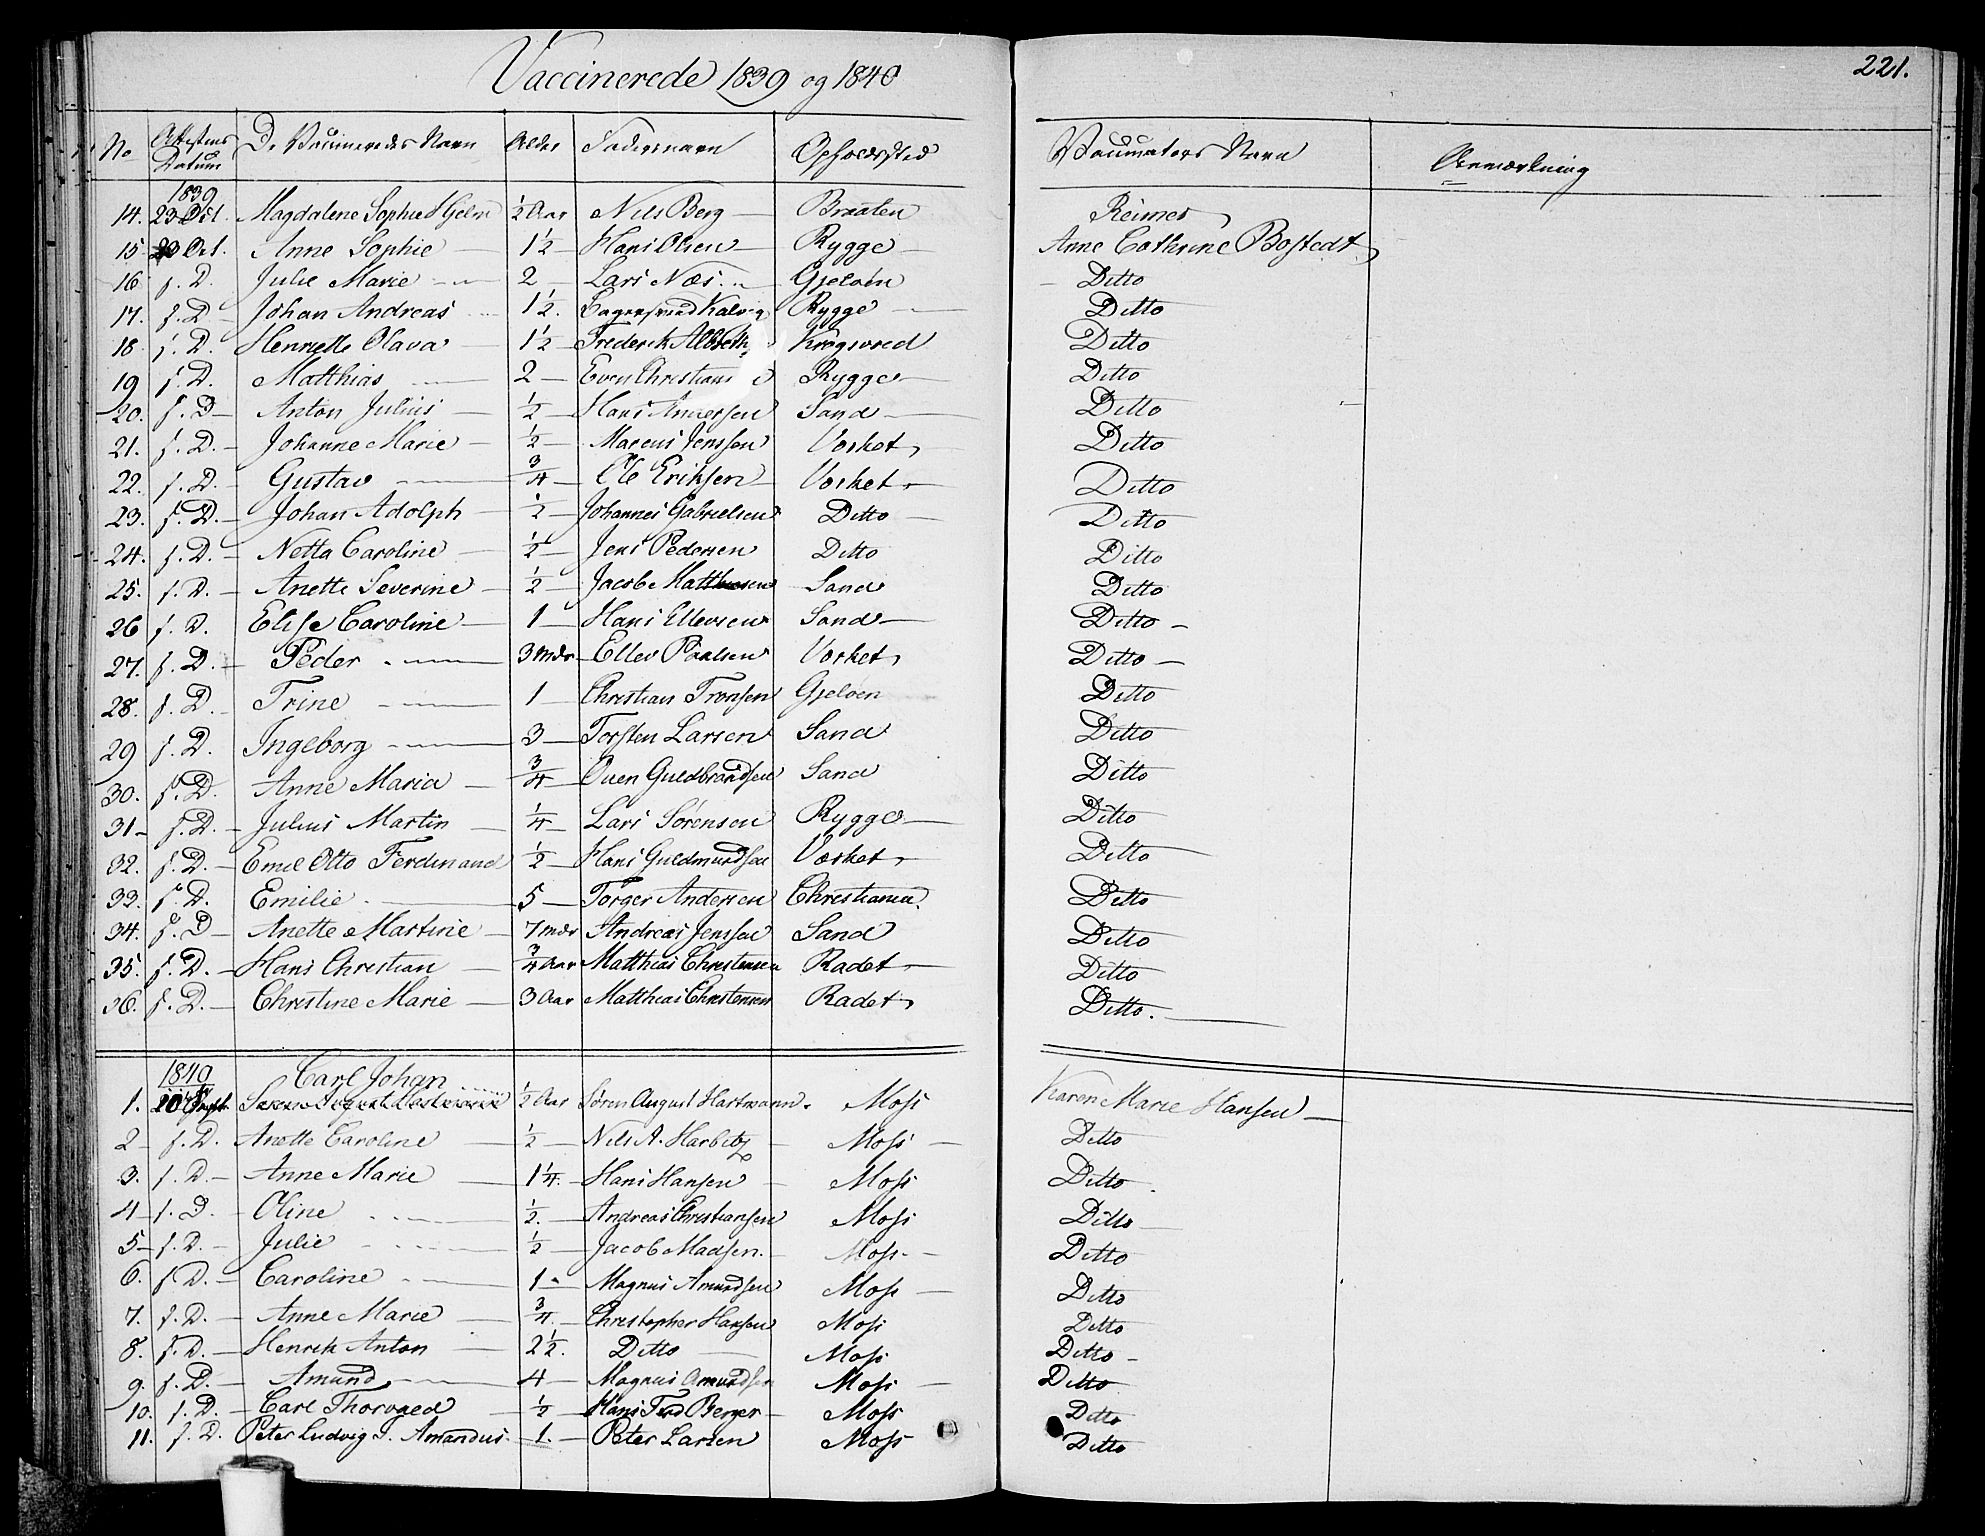 Vaccinerede 1839 og 1840
221.
No Attestens Datum De Vaccineredes Navn Alder Faders navn Opholdssted Vaccinators Navn Anmærkning
1839
14. 23 Oct. Magdalene Sophie Hjelm ½ Aar Nils Berg Braaten Reimer
15 23 Oct. Anne Sophie 1½ Hans Olsen Rygge Anne Cathrine Bostedt
16 s. D. Julie Marie 2 Lars Næs Gjeløen Ditto
17. s. D Johan Andreas 1½. Rygge Ditto
18 s. D. Henriette Olava 1½ Frederik Krogsvred Ditto
19 s. D. Matthias 2 Even Christians Rygge Ditto
20. s. D Anton Julius ½ Hans Andersen Sand Ditto
21. s. D. Johanne Marie ½ Marcus Jenssen Værket Ditto
22. s. D. Gustav ¾ Ole Eriksen Værket Ditto
23. s. D. Johan Adolph ½ Johannes Gabrielsen Ditto Ditto
24. s. D. Netta Caroline ½ Jens Pedersen Ditto Ditto
25. s. D. Anette Severine ½ Jacob Matthiesen Sand Ditto
26 s. D. Elise Caroline 1 Hans Ellevsen Sand Ditto
27. s. D. Peder 3 Mdr Ellev Paalsen Værket Ditto
28. s. D. Trine 1 Christian Tronsen Gjeløen Ditto
29 s. D. Ingeborg 3 Torsten Larsen Sand Ditto
30. s. D. Anne Maria ¾ Ouen Guldbrandsen Sand Ditto
31 s. D. Julius Martin ¼ Lars Sørensen Rygge Ditto
32. s. D. Emil Otto Ferdinand ½ Hans Guldmundsen Værket Ditto
33. s. D. Emilie 5 Torger Andersen Christiania. Ditto
34. s. D Anette Martine 7 Mdr Andreas Jenssen Sand Ditto
35. s. D. Hans Christian ¾ Aar Matthias Christensen Radet Ditto
36. s. D. Christine Marie 3 Aar Matthias Christensen Radet Ditto.
1840 Carl Johan
1. ½ Aar Søren August Hartmann. Moss Karen Marie Hansen
2 s. D. Anette Caroline ½ Nils A. Harbitz Moss Ditto
3. s. D. Anne Marie 1¼. Hans Hansen Moss Ditto
4 s. D. Oline ½. Andreas Christiansen Moss Ditto
5 s. D. Julie ½ Jacob Madsen. Moss Ditto
6. s. D. Caroline 1 Magnus Amundsen Moss Ditto
7. s. D. Anne Marie ¾. Christopher Hansen Moss Ditto
8. s. D. Henrik Anton 2½. Ditto Moss Ditto
9. s. D. Amund 4 Magnus Amundsen Moss Ditto
10. s. D. Carl Thorvald ½ Hans Ferd Berger Moss Ditto
11. s. D. Peter Ludvig T. Amandus 1. Peter Larsen Moss Ditto